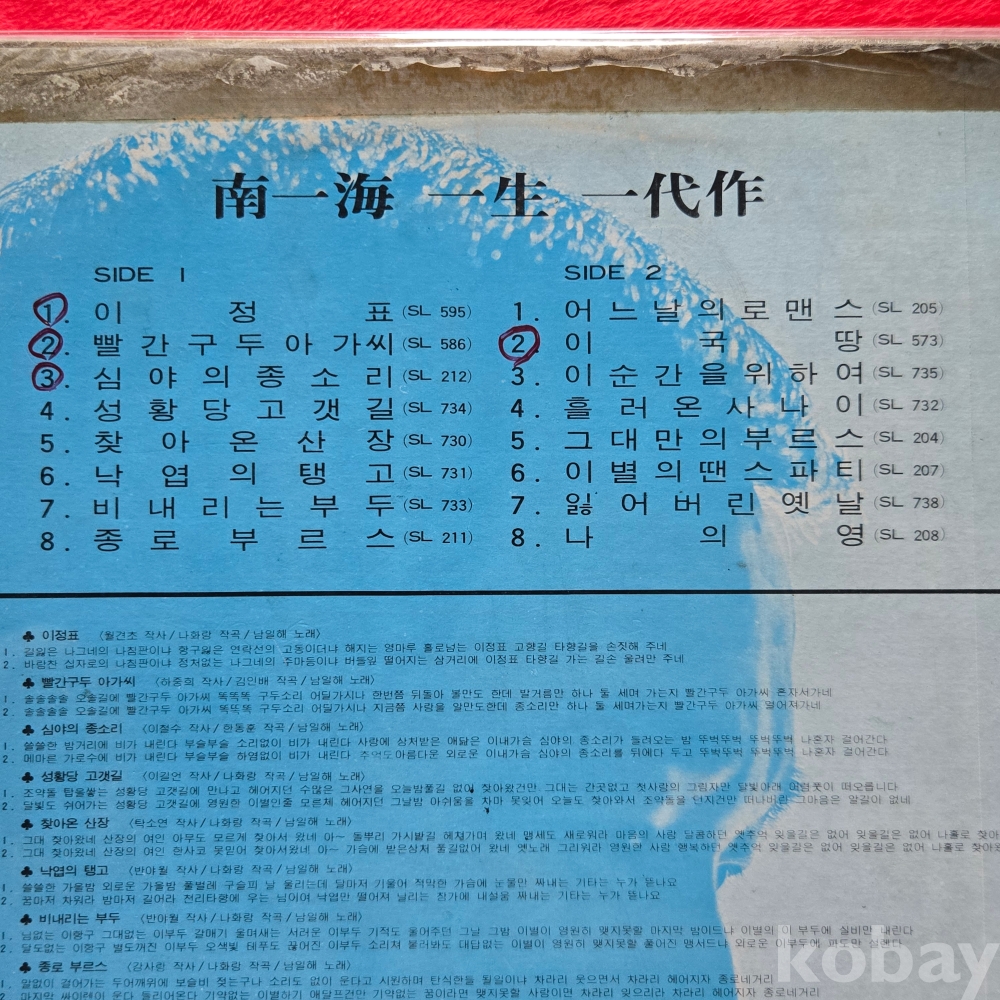 南一海 一生 一代作
SIDE 1
1. 이정표 (SL 595)
2. 빨간구두아가씨 (SL 586)
3. 심야의종소리 (SL 212)
4. 성황당고갯길 (SL 734)
5. 찾아온산장 (SL 730)
6. 낙엽의탱고 (SL 731)
7. 비내리는부두 (SL 733)
8. 종로부르스 (SL 211)
SIDE 2
1. 어느날의로맨스 (SL 205)
2. 이국땅 (SL 573)
3. 이순간을위하여 (SL 735)
4. 흘러온사나이 (SL 732)
5. 그대만의부르스 (SL 204)
6. 이별의땐스파티 (SL 207)
7. 잃어버린옛날 (SL 738)
8. 나의영 (SL 208)
♣ 이정표 〈월견초 작사/나화랑 작곡/남일해 노래〉
1. 길잃은 나그네의 나침판이냐 항구잃은 연락선의 고동이더냐 해지는 영마루 홀로넘는 이정표 고향길 타향길을 손짓해 주네
2. 바람찬 십자로의 나침판이냐 정처없는 나그네의 주마등이냐 버들잎 떨어지는 삼거리에 이정표 타향길 가는 길손 울려만 주네
♣ 빨간구두 아가씨 〈하중희 작사/김인배 작곡/남일해 노래〉
1. 솔솔솔솔 오솔길에 빨간구두 아가씨 똑똑똑 구두소리 어딜가시나 한번쯤 뒤돌아 볼만도 한데 발거름만 하나 둘 세며 가는지 빨간구두 아가씨 혼자서가네
2. 솔솔솔솔 오솔길에 빨간구두 아가씨 똑똑똑 구두소리 어딜가시나 지금쯤 사랑을 알만도한데 종소리만 하나 둘 세며가는지 빨간구두 아가씨 멀어져가네
♣ 심야의 종소리 〈이철수 작사/한동훈 작곡/남일해 노래〉
1. 쓸쓸한 밤거리에 비가 내린다 부슬부슬 소리없이 비가 내린다 사랑에 상처받은 애닲은 이내가슴 심야의 종소리가 들려오는 밤 뚜벅뚜벅 뚜벅뚜벅 나혼자 걸어간다
2. 메마른 가로수에 비가 내린다 부슬부슬 하염없이 비가 내린다 추억도아름다운 외로운 이내가슴 심야의 종소리를 뒤에다 두고 뚜벅뚜벅 뚜벅뚜벅 나혼자 걸어간다
♣ 성황당 고갯길 〈이길언 작사/나화랑 작곡/남일해 노래〉
1. 조약돌 탑을쌓는 성황당 고갯길에 만나고 헤어지던 수많은 그사연을 오늘밤풀길 없어 찾아왔건만 그대는 간곳없고 첫사랑의 그림자만 달빛아래 아련풋이 떠오릅니다
2. 달빛도 쉬어가는 성황당 고갯길에 영원한 이별인줄 모르체 헤어지던 그날밤 아쉬움을 차마 못잊어 오늘도 찾아와서 조약돌을 던지건만 떠나버린 그마음은 알길이 없네
♣ 찾아온 산장 〈탁소연 작사/나화랑 작곡/남일해 노래〉
1. 그대 찾아왔네 산장의 여인 아무도 모르게 찾아서 왔네 아~ 돌뿌리 가시밭길 헤쳐가며 왔네 맹세도 새로워라 마음의 사랑 달콤하던 옛추억 잊을길은 없어 잊을길은 없어 나홀로 찾아
2. 그대 찾아왔네 산장의 여인 한사코 못믿어 찾아서왔네 아~ 가슴에 받은상처 풀길없어 왔네 옛노래 그리워라 영원한 사랑 행복하던 옛추억 잊을길은 없어 잊을길은 없어 나홀로 찾아
♣ 낙엽의 탱고 〈반야월 작사/나화랑 작곡/남일해 노래〉
1. 쓸쓸한 가을밤 외로운 가을밤 풀벌레 구슬피 날 울리는데 달마저 기울어 적막한 가슴에 눈물만 짜내는 기타는 누가 뜯나요
2. 꿈마저 차워라 밤마저 길어라 천리타향에 우는 님이여 낙엽만 떨어져 날리는 창가에 내설움 짜내는 기타는 누가 뜯나요
♣ 비내리는 부두 〈반야월 작사/나화랑 작곡/남일해 노래〉
1. 님없는 이항구 그대없는 이부두 갈매기 울며새는 서러운 이부두 기적도 울어주던 그날 그밤 이별이 영원히 맺지못할 마지막 밤이드냐 이별의 이 부두에 실비만 내린다
2. 달도없는 이항구 별도꺼진 이부두 오색빛 테푸도 끊어진 이부두 소리쳐 불러봐도 대답없는 이별이 영원히 맺지못할 풀어진 맹서드냐 외로운 이부두에 파도만 설렌다
♣ 종로 부르스 〈강사랑 작사/나화랑 작곡/남일해 노래〉
1. 말없이 걸어가는 두어깨위에 보슬비 젖는구나 소리도 없이 운다고 시원하며 탄식한들 뭘일이냐 차라리 웃으면서 차라리 헤어지자 종로네거리
kobay